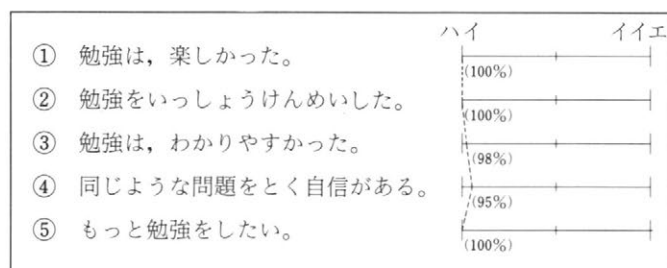 ハイ イイエ
① 勉強は，楽しかった。 (100%)
② 勉強をいっしょうけんめいした。 (100%)
③ 勉強は，わかりやすかった。 (98%)
④ 同じような問題をとく自信がある。 (95%)
⑤ もっと勉強をしたい。 (100%)